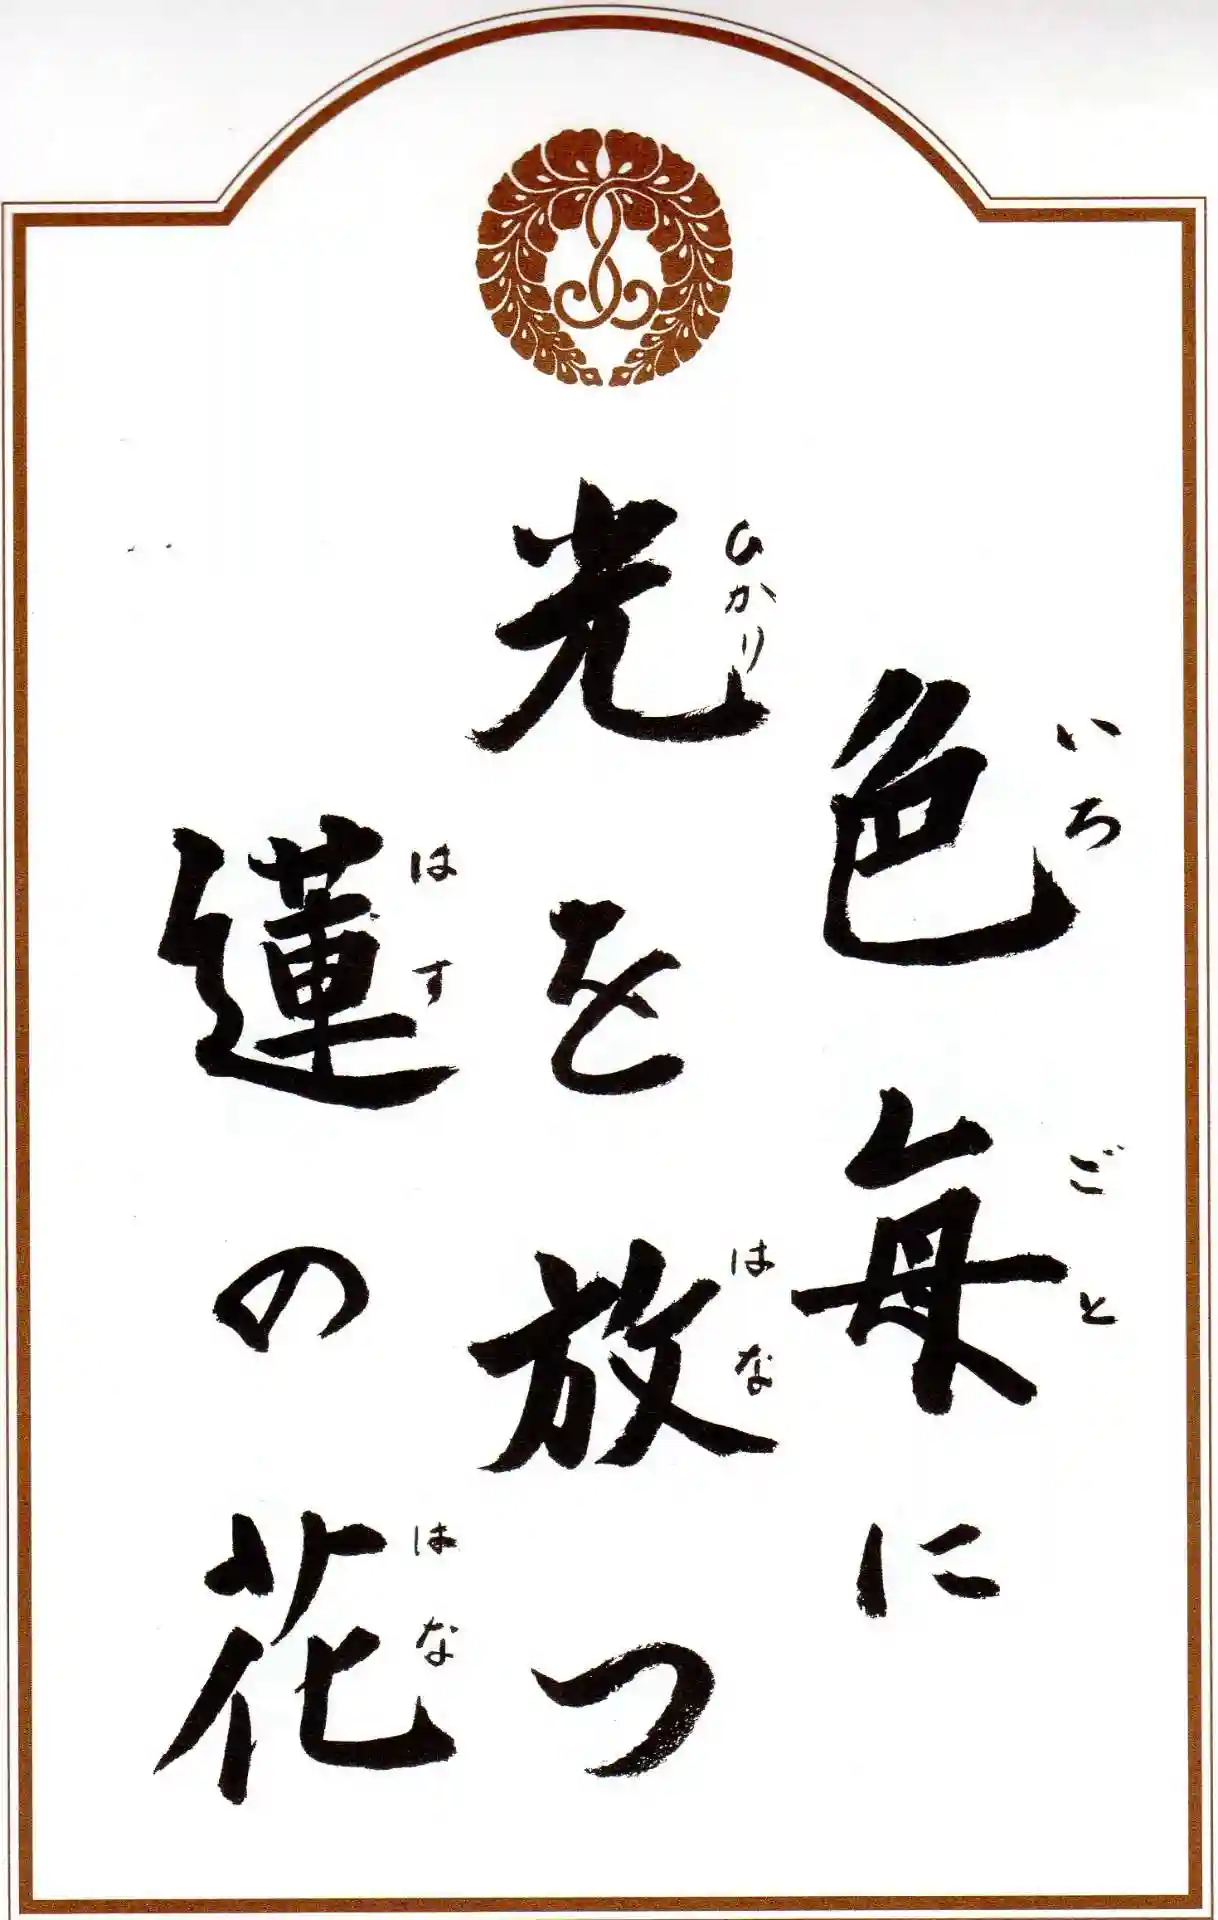 色毎に
いろ ごと
光を放つ
ひかり はな
蓮の花
はす はな